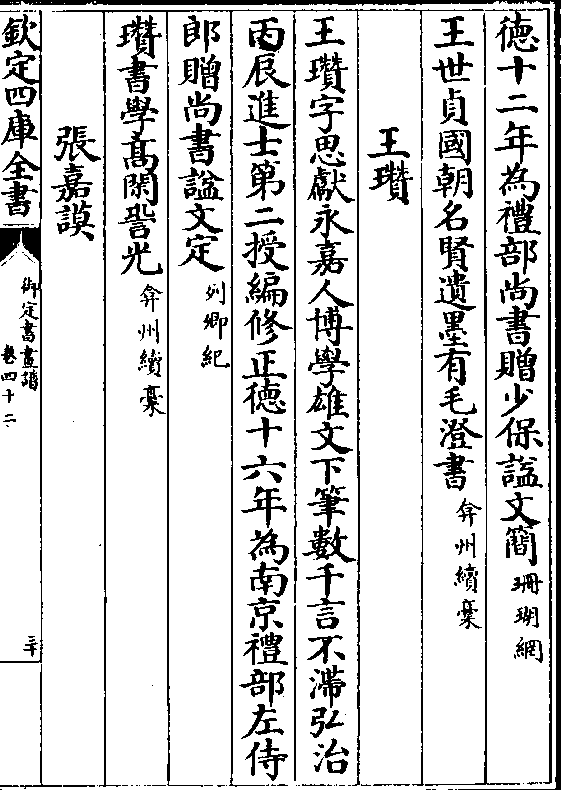 德十二年為禮部尚書贈少保謚文簡珊瑚網
王世貞國朝名賢遺墨有毛澄書弇州續藁
王瓚
王瓚字思獻永嘉人博學雄文下筆數千言不滯弘治
丙辰進士第二授編修正德十六年為南京禮部左侍
郎贈尚書謚文定列卿紀
瓚書學髙閑䛕光弇州續藁
張嘉謨
欽定四庫全書
御定書畫譜
卷四十二
三十